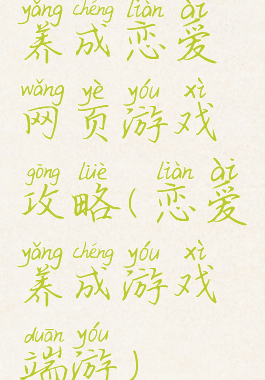 yǎng chéng liàn ài
养成恋爱
wǎng yè yóu xì
网页游戏
gōng lüè liàn ài
攻略(恋爱
yǎng chéng yóu xì
养成游戏
duān yóu
端游)